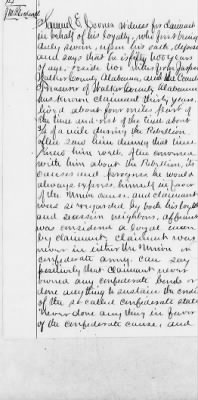 Samuel E. Jones witness for claimant
in behalf of his loyalty, who first being
duly sworn, upon his oath, deposes
and says that he is fifty two years
of age, reside near Jasper
Walker County Alabama, and the County
Treasurer of Walker County Alabama
has known claimant thirty years,
lived about four miles from
of the time and rest of the time about
of a mile during the Rebellion.
often saw him during that time
times him conversed
with him about the Rebellion, its
causes and progress he would
always express himself in favor
of the Union cause, and claimant
was so regarded by both his loyal
and secesh neighbors, affiant
was considered a loyal man
by claimant, claimant was
never in either the Union or
confederate army. can say
positively that claimant never
owned any confederate bonds or
done anything to sustain the credit
of the so called confederate states
never done any thing in favor
of the confederate cause, and